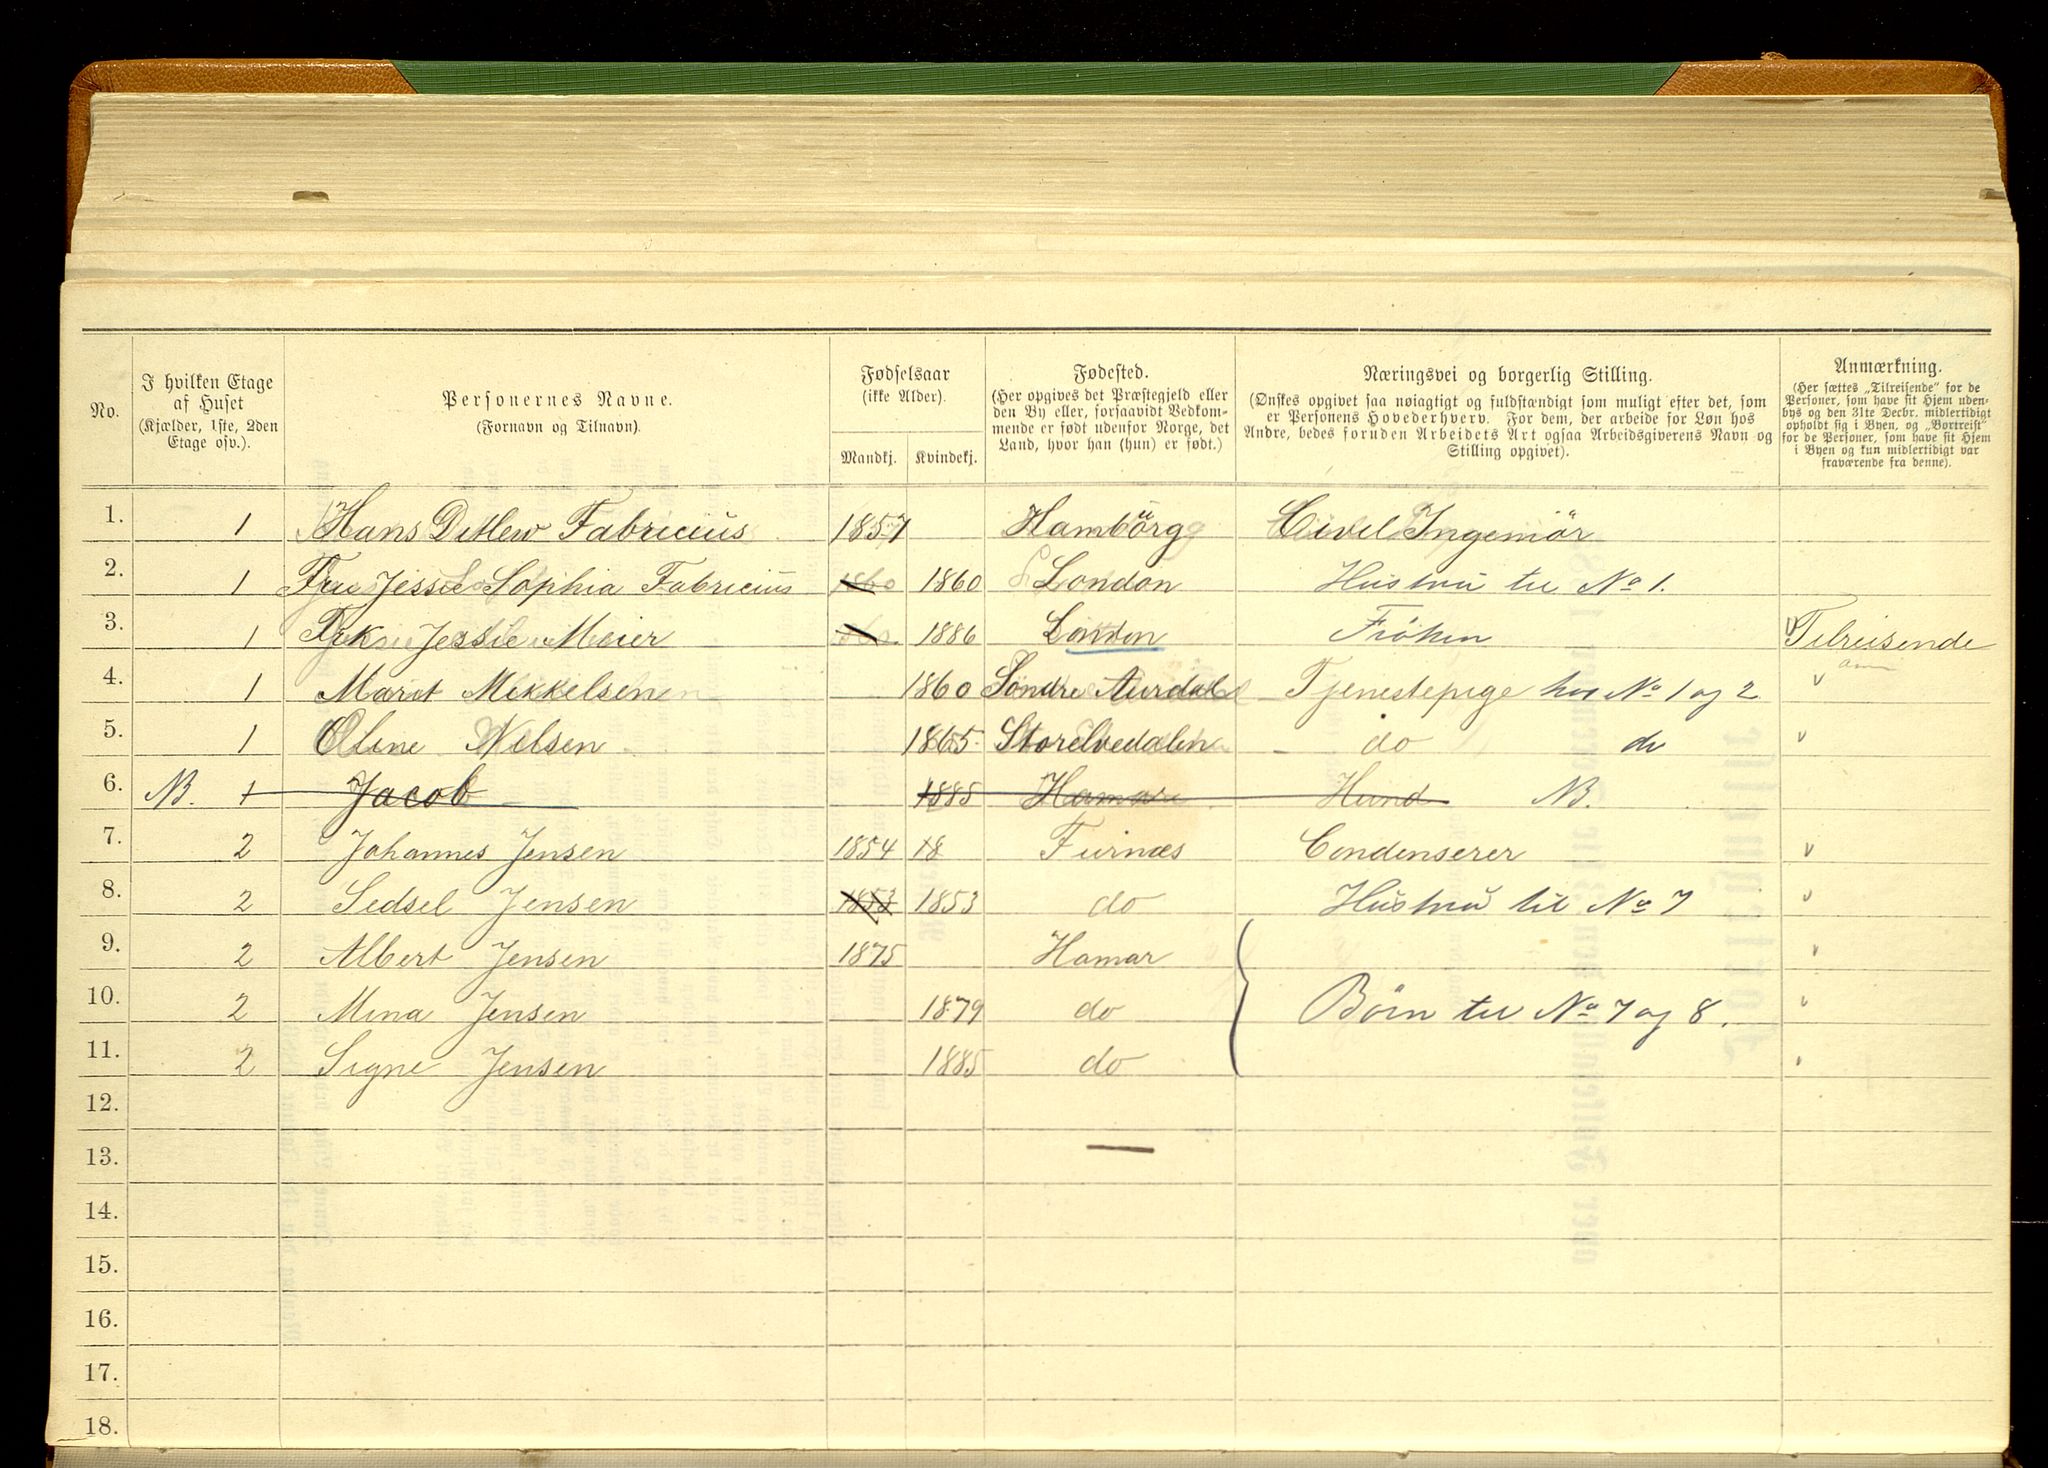 No.
I hvilken Etage af Huset (Kjælder, 1ste, 2den Etage osv.).
Personernes Navne. (Fornavn og Tilnavn).
Fødselsaar (ikke Alder).
Mandkj. Kvindekj.
Fødested. (Her opgives det Præstegjeld eller den By eller, forsaavidt Vedkommende er født udenfor Norge, det Land, hvor han (hun) er født.)
Næringsvei og borgerlig Stilling. (Ønskes opgivet saa nøiagtigt og fuldstændigt som muligt efter det, som er Personens Hovederhverv. For dem, der arbeide for Løn hos Andre, bedes foruden Arbeidets Art ogsaa Arbeidsgiverens Navn og Stilling opgivet).
Anmærkning. (Her sættes „Tilreisende“ for de Personer, som have sit Hjem udenbys og den 31te Decbr. midlertidigt opholdt sig i Byen, og „Bortreist“ for de Personer, som have sit Hjem i Byen og kun midlertidigt var fraværende fra denne).
1. 1 Hans Ditlew Fabricius 1857 Hamburg Civel Ingeniör
2. 1 Fru Jessie Sophia Fabricius 1860 1860 London Hustru til No 1.
3. 1 Frk Jessie Meier 1886 London Fröken Tilreisende
4. 1 Marit Mikkelsen 1860 Söndre Aurdal Tjenestepige hos No 1 og 2
5. 1 Oline Nilsen 1865 Storelvedalen do do
6. NB. 1 Jacob 1885 Hamar Hund NB.
7. 2 Johannes Jensen 1854 18 Furnæs Condenserer
8. 2 Sidsel Jensen 1853 1853 do Hustru til No 7
9. 2 Albert Jensen 1875 Hamar
10. 2 Mina Jensen 1879 do Börn til No 7 og 8.
11. 2 Signe Jensen 1885 do
12.
13.
14.
15.
16.
17.
18.